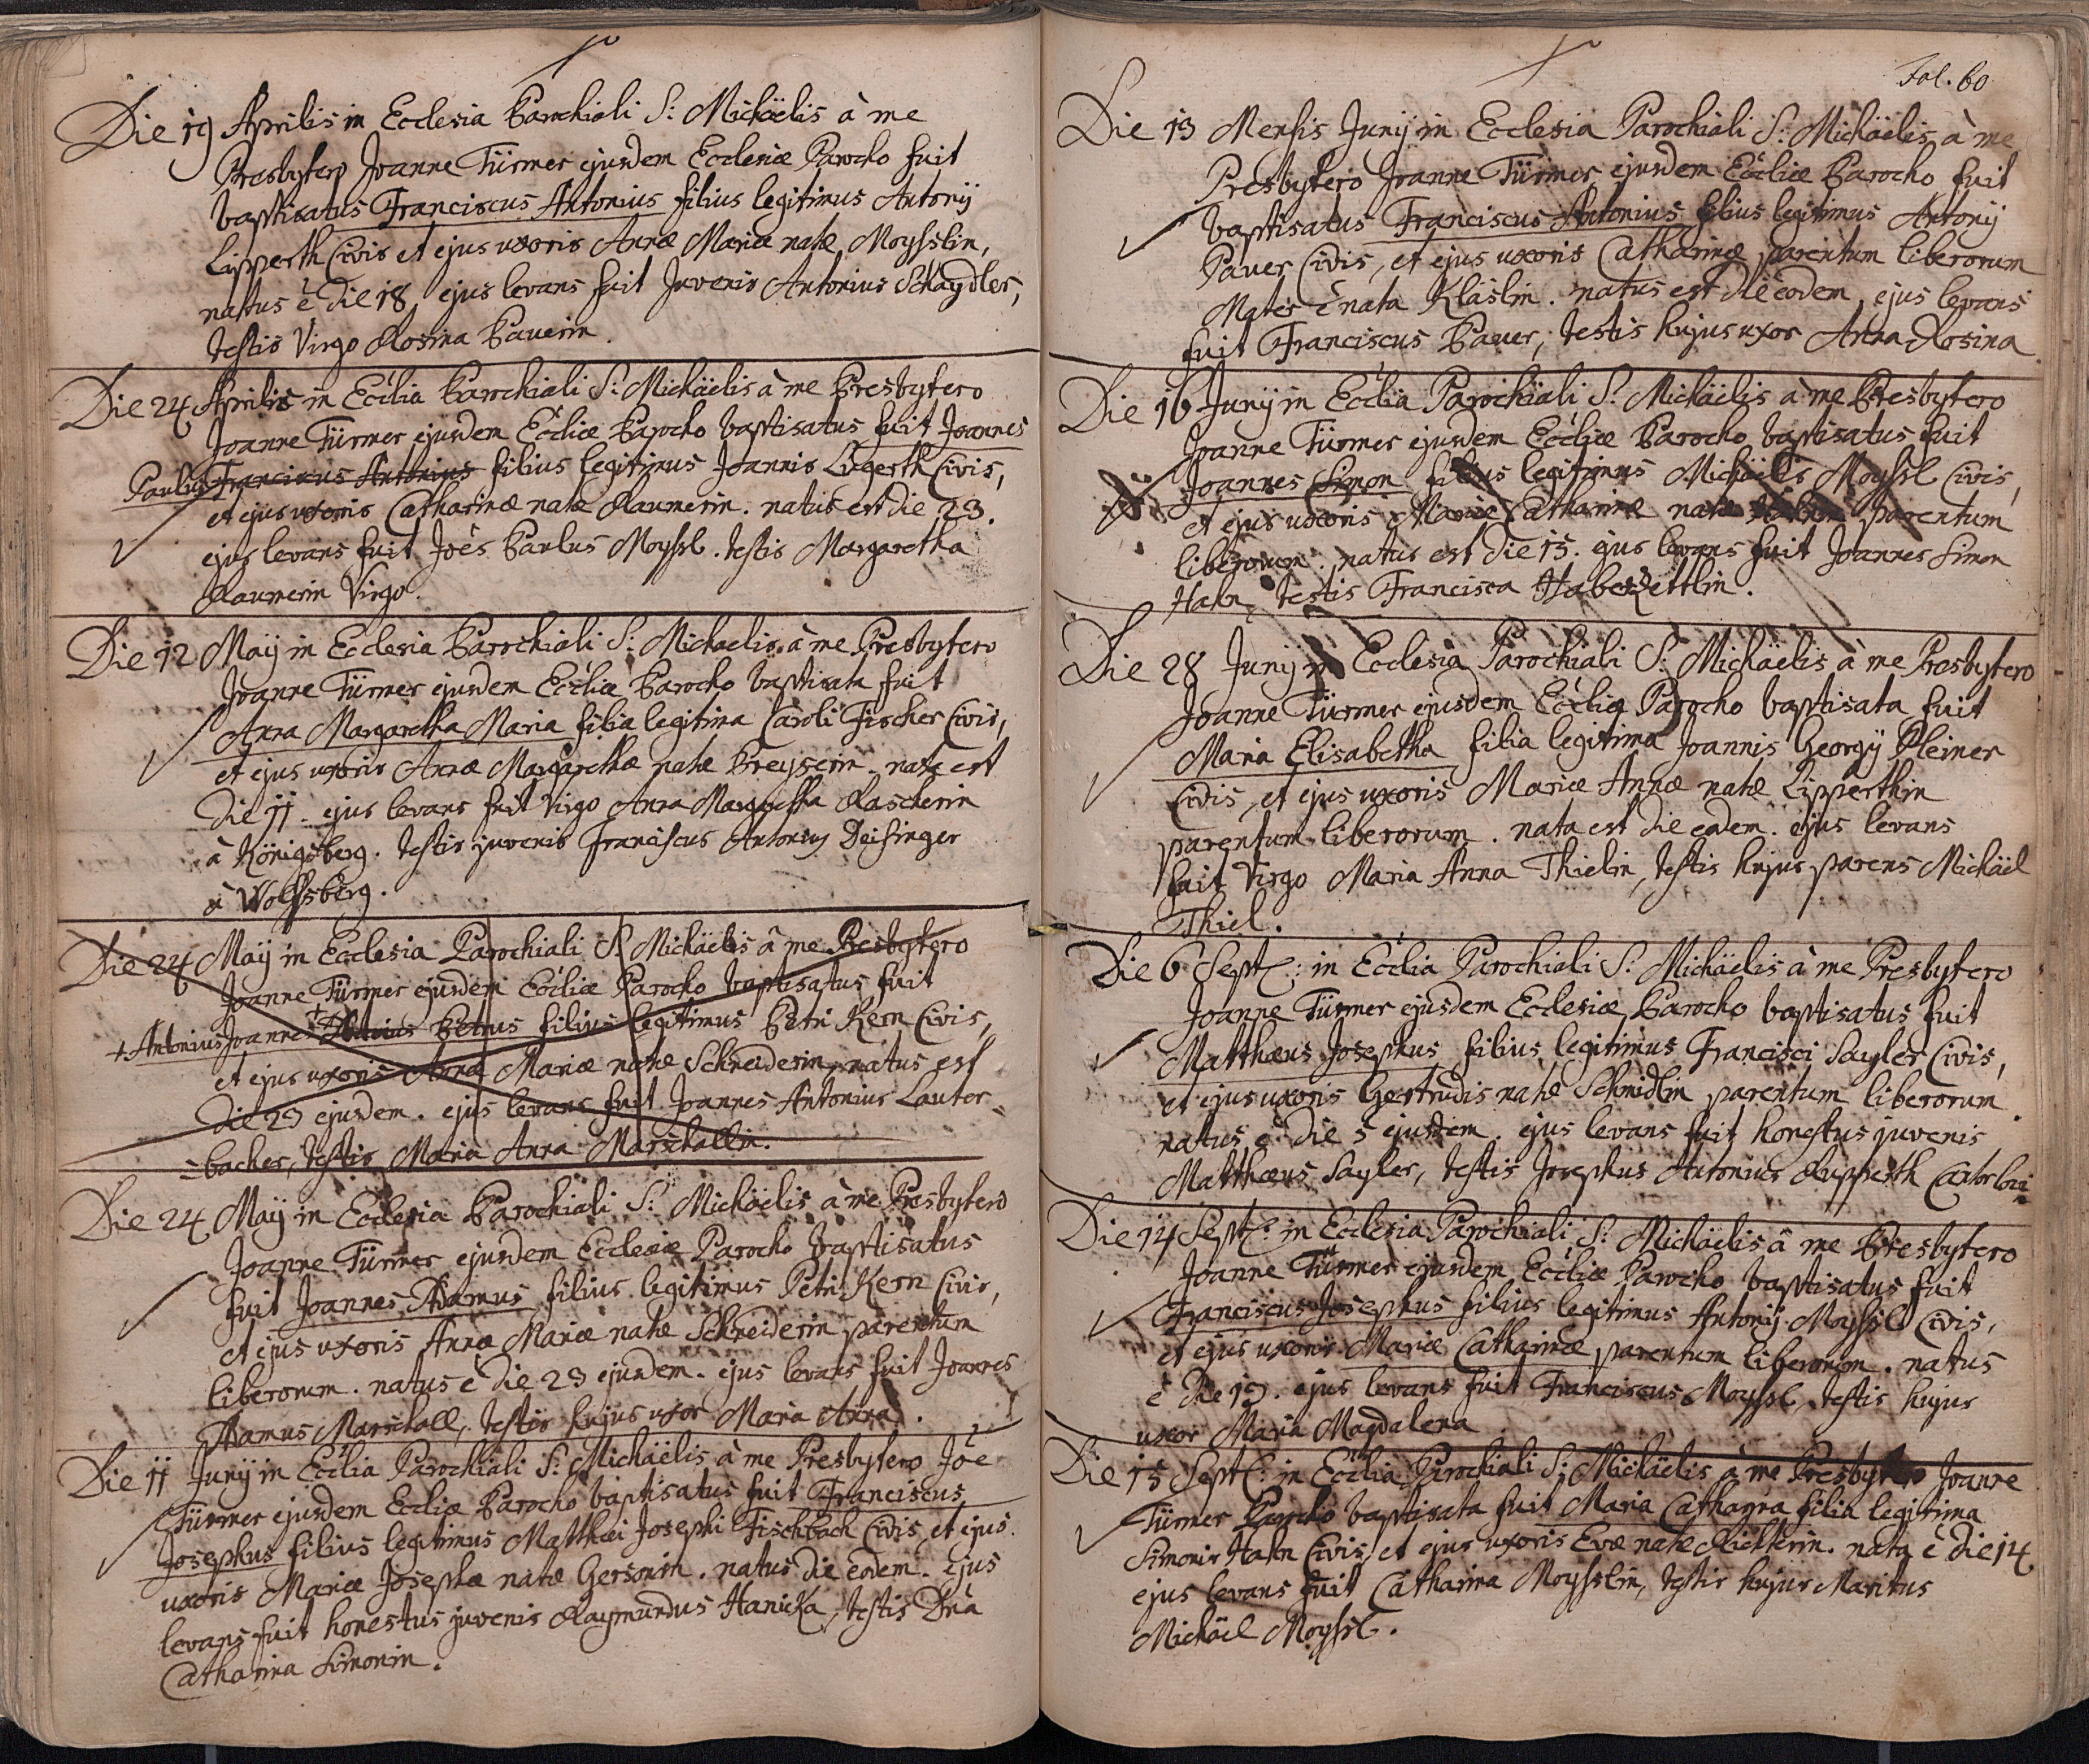 Die 19 Aprilis in Ecclesia Parochiali S: Michäelis à me
Presbytero Joanne Türmer ejusdem Ecclesiæ Parocho fuit
baptisatus Franciscus Antonius filius legitimus Antonij
Lipperth Civis et ejus uxoris Annæ Mariæ natæ Moysslin,
nattus è die 18 ejus levans fuit Juvenis Antonius Schaydler,
testis Virgo Rosina Pauerin.
Die 24 Aprilis in Ecclia Parochiali S: Michäelis à me Presbytero
Joanne Türmer ejusdem Eccliæ Parocho baptisatus fuit Joannes
Paulus Franciscus Antonius filius legitimus Joannis Ligerth Civis,
et ejus uxoris Catharinæ natæ Raumerin. natus est die 23.
ejus levans fuit Joēs Paulus Moyssl. testis Margaretha
Raumerin Virgo.
Die 12 Maij in Ecclesia Parochiali S: Michaelis à me Presbytero
Joanne Türmer ejusdem Eccliæ Parocho baptisata fuit
Anna Margaretha Maria filia legitima Caroli Fischer Civis,
et ejus uxoris Annæ Margarethæ natæ Breyserin. nata est
die 11. ejus levans fuit Virgo Anna Margaretha Rascherin
à Königsberg. testis juvenis Franciscus Antonius Deisinger
à Wolfsberg.
Die 24 Maij in Ecclesia Parochiali S. Michäelis à me Presbytero
Joanne Türmer ejusdem Eccliæ Parocho baptisatus fuit
+ Antonius Joannes Petrus filius legitimus Petri Kern Civis,
et ejus uxoris Annæ Mariæ natæ Schneiderin, natus est
die 23 ejusdem. ejus levans fuit Joannes Antonius Lauter-
-bacher, testis Maria Anna Marschallin.
Die 24 Maij in Ecclesia Parochiali S: Michäelis à me Presbytero
Joanne Türmer ejusdem Ecclesiæ Parocho baptisatus
fuit Joannes Adamus filius legitimus Petri Kern Civis,
et ejus uxoris Annæ Mariæ natæ Schneiderin parentum
liberorum. natus è die 23 ejusdem. ejus levans fuit Joannes
Adamus Marschall, testis hujus uxor Maria Anna.
Die 11 Junij in Ecclia Parochiali S: Michäelis à me Presbytero Joē
Türmer ejusdem Eccliæ Parocho baptisatus fuit Franciscus
Josephus filius legitimus Matthæi Josephi Fischbach Civis et ejus
uxoris Mariæ Josephæ natæ Gersonin. natus die eodem. ejus
levans fuit honestus juvenis Raymundus Hanicka, testis Dnā
Catharina Simonin.
Fol. 60
Die 13 Mensis Junij in Ecclesia Parochiali S: Michäelis à me
Presbytero Joanne Türmer ejusdem Eccliæ Parocho fuit
baptisatus Franciscus Antonius filius legitimus Antonij
Pauer Civis, et ejus uxoris Catharinæ parentum liberorum
Mater è nata Kläslin. natus est die eodem, ejus levans
fuit Franciscus Pauer, testis hujus uxor Anna Rosina.
Die 16 Junij in Ecclia Parochiali S: Michäelis à me Presbytero
Joanne Türmer ejusdem Eccliæ Parocho baptisatus fuit
Joannes Simon filius legitimus Michäelis Moyssl Civis,
et ejus uxoris Mariæ Catharinæ natæ parentum
liberorum. natus est die 15. ejus levans fuit Joannes Simon
Hahn, testis Francisca Haberzettlin.
Die 28 Junij in Ecclesia Parochiali S: Michäelis à me Presbytero
Joanne Türmer ejusdem Eccliæ Parocho baptisata fuit
Maria Elisabetha filia legitima Joannis Georgij Pleiner
Civis, et ejus uxoris Mariæ Annæ natæ Lipperthin
parentum liberorum. nata est die eadem. ejus levans
fuit Virgo Maria Anna Thielin, testis hujus parens Michäel
Thiel.
Die 6 Sept: in Ecclia Parochiali S: Michäelis à me Presbytero
Joanne Türmer ejusdem Ecclesiæ Parocho baptisatus fuit
Matthæus Josephus filius legitimus Francisci Sayler Civis,
et ejus uxoris Gertrudis natæ Schmidlin parentum liberorum.
natus è die 5 ejusdem. ejus levans fuit honestus juvenis
Matthæus Sayler, testis Josephus Antonius Rupperth
Die 14 Sept: in Ecclesia Parochiali S: Michäelis à me Presbytero
Joanne Türmer ejusdem Eccliæ Parocho baptisatus fuit
Franciscus Josephus filius legitimus Antonij Moyssl Civis,
et ejus uxoris Mariæ Catharinæ parentum liberorum. natus
è die 13. ejus levans fuit Franciscus Moyssl. testis hujus
uxor Maria Magdalena
Die 15 Sept: in Ecclia Parochiali S: Michäelis à me Presbytero Joanne
Türmer Parocho baptisata fuit Maria Catharina filia legitima
Simonis Hahn Civis, et ejus uxoris Evæ natæ Richterin. nata è die 14
ejus levans fuit Catharina Moysslin, testis hujus Maritus
Michäel Moyssl.